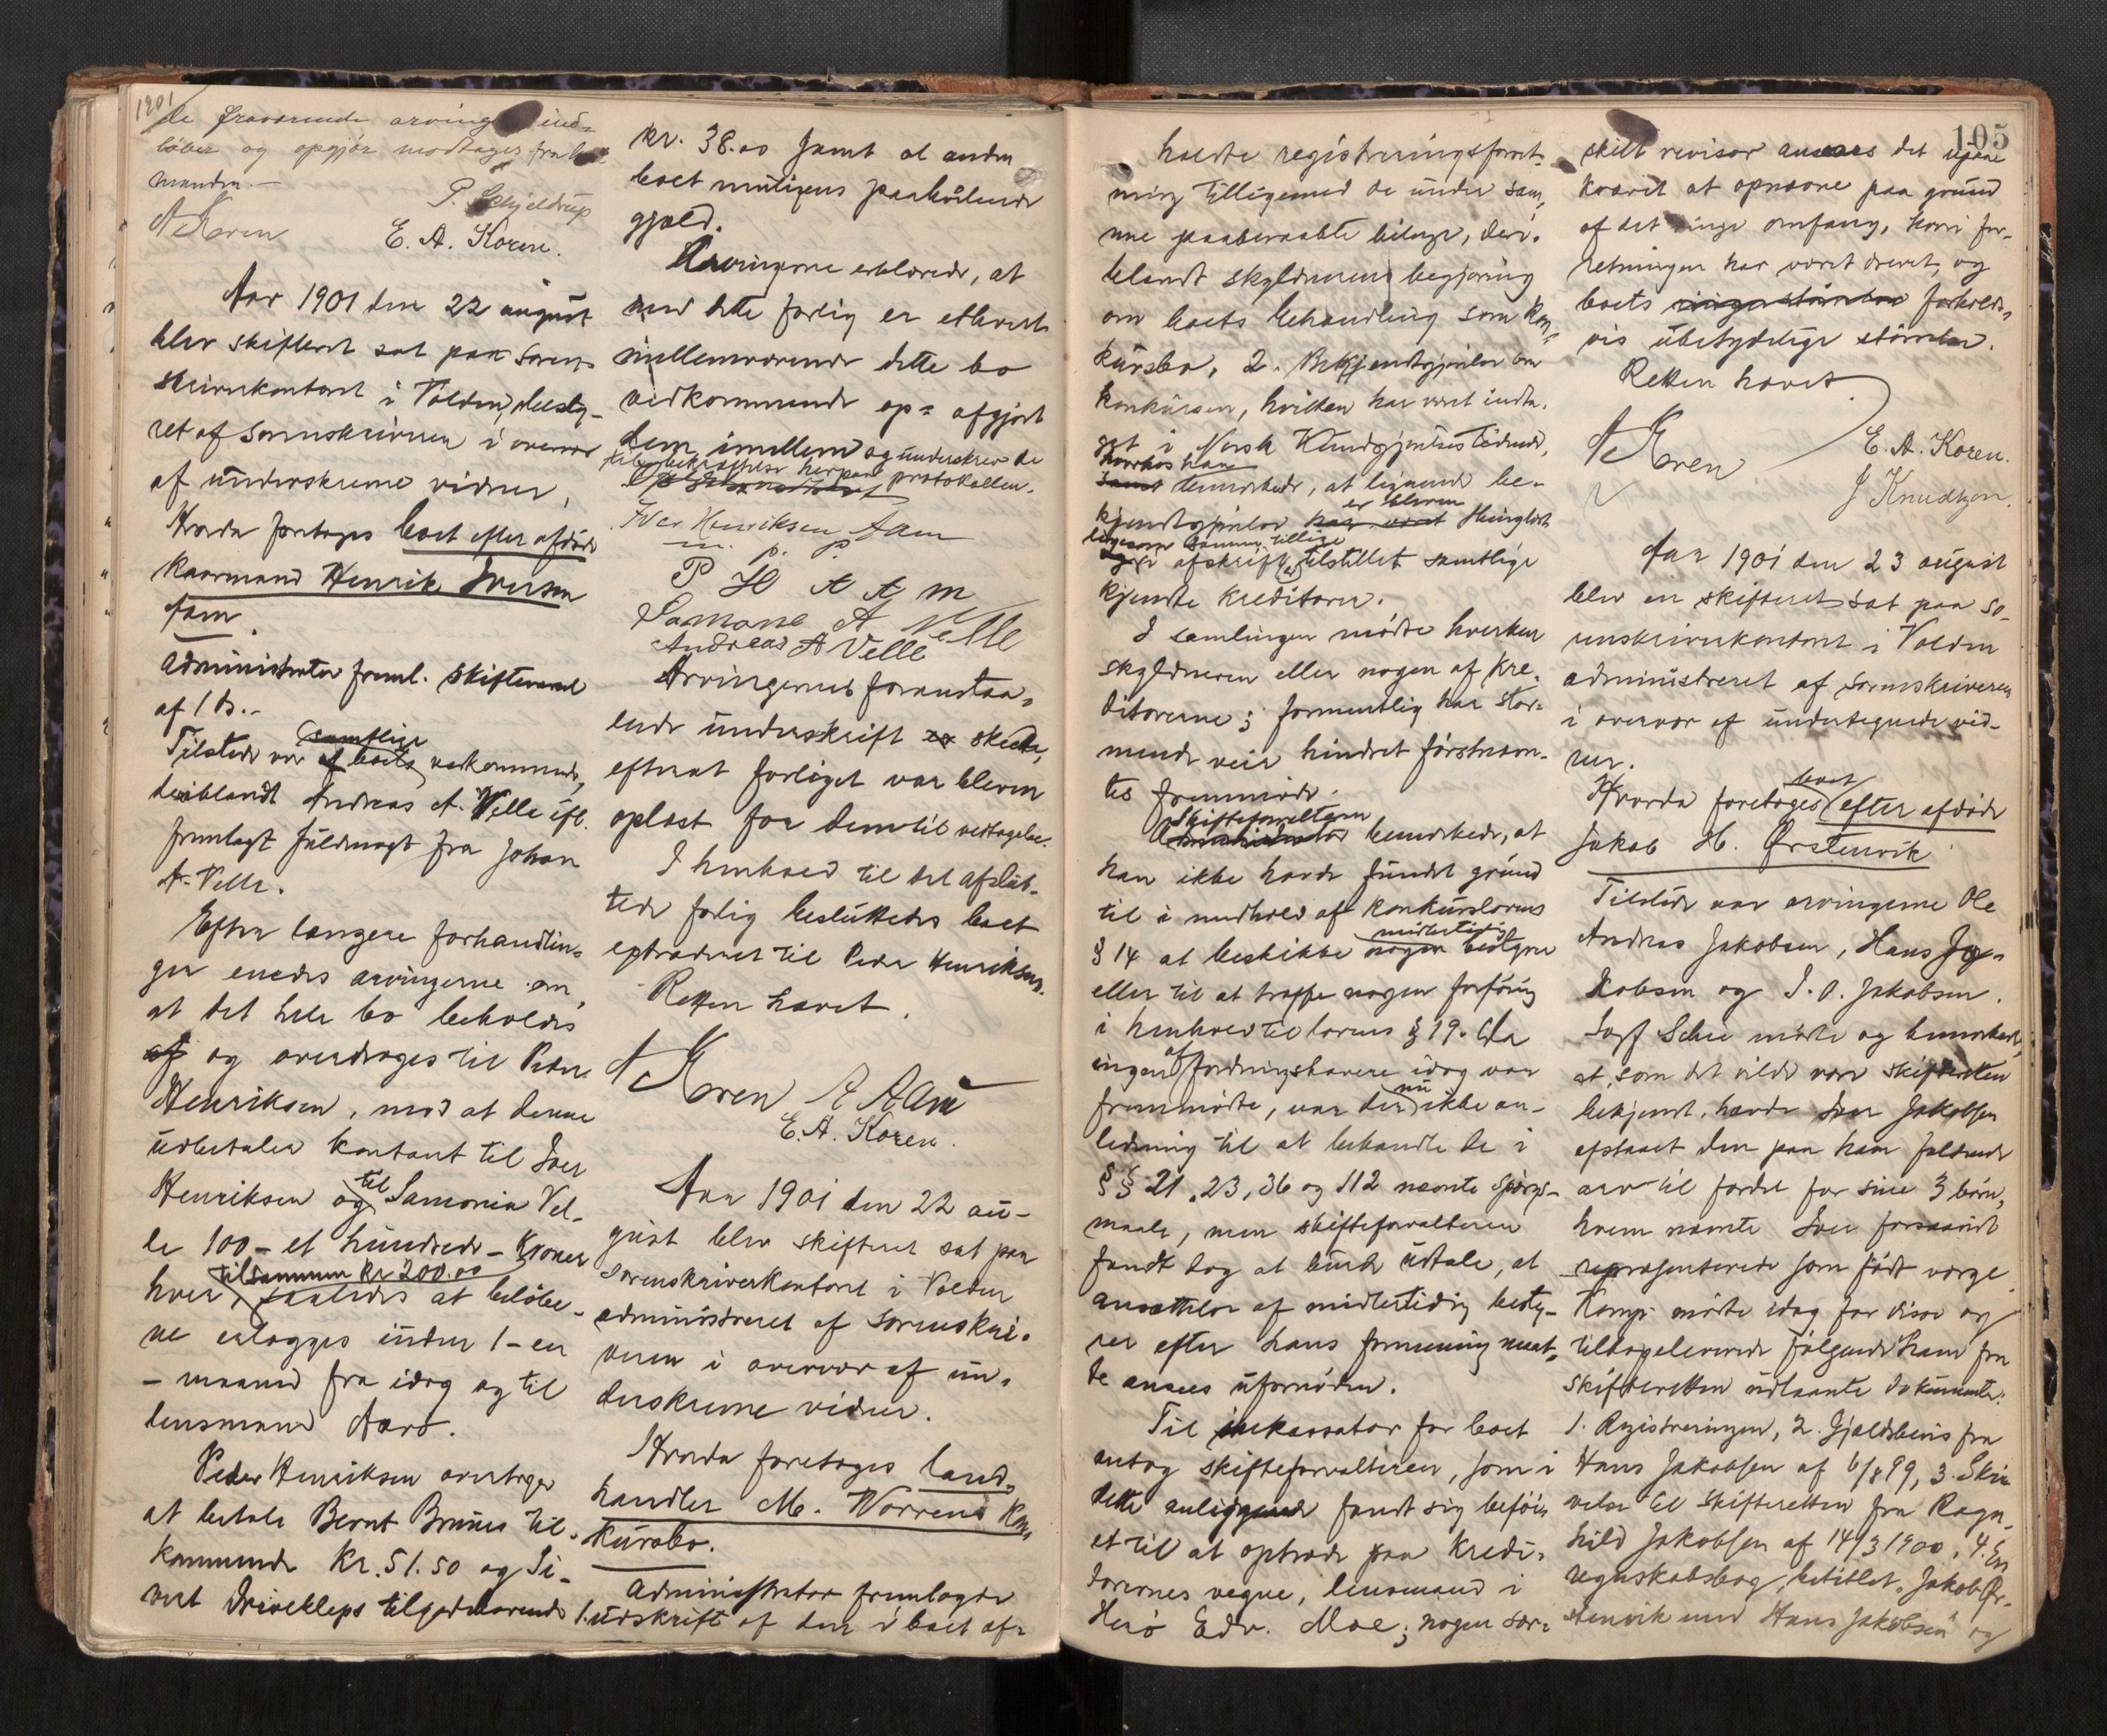 1901
de fraværende arvinger ind-
løber og opgjør modtages fra
manden.—
P. Schjeldrup
A Koren
E. A. Koren.
Aar 1901 den 22 august
blev skifteret sat paa soren-
skriverkontoret i Volden, besty-
ret af sorenskriveren i overvær
af underskrevne vidner.
Hvorda foretoges boet efter afdøde
kaarmand Henrik Iversen
Aam.
Administrator freml. skifte
af 1 ds.-
Tilstede var samtlige boets vedkommende,
deriblandt Andreas A. Velle ifl.
fremlagt fuldmagt fra Johan
A. Velle.
Efter længere forhandlin-
ger enedes arvingerne om,
at det hele bo beholdes
af og overdrages til Peder
Henriksen, mod at denne
udbetaler kontant til Iver
Henriksen og til Samonia Vel-
le 100 - et hundrede - kroner
hver, tilsammen kr 200.00 saaledes at beløbe-
ne erlægges inden 1 - en
- maaned fra idag og til
lensmand Aarø.
Peder Henriksen overtager
at betale Bernt Brunes til-
kommende kr. 51.50 og Si-
vert Drivekleps tilgodehavende
kr. 38.00 samt al anden
boet muligens paahvilende
gjæld.
Arvingerne erklærede, at
med dette forlig er ethvert
mellemværende dette bo
vedkommende op= afgjort
dem imellem og underskrev de
til bekræftelse herpaa protokollen.
Iver Henriksen Aam
m. p. p.
P H A A M
Samone A Velle
Andreas A Velle
Arvingernes foranstaa-
ende underskrift er skede,
efterat forliget var bleven
oplæst for dem til vedtagelse.
I henhold til det afslut-
tede forlig besluttedes boet
extraderet til Peder Henriksen.
Retten hævet.
A Koren A Aam
E. A. Koren.
Aar 1901 den 22 au-
gust blev skifteret sat paa
sorenskriverkontoret i Volden
administreret af sorenskri-
veren i overvær af un-
derskrevne vidner.
Hvorda foretoges land-
handler M. Worrens kon-
kursbo.
Administrator fremlagde
1. udskrift af den i boet af-
105
holdte registreringsforret-
ning tilligemed de under sam-
me paaberaabte bilage, deri-
blandt skyldnerens begjæring
om boets behandling som kon-
kursbo, 2. Bekjendtgjørelse om
konkursen, hvilken har været indta-
get i Norsk Kundgjørelsestidende,
hvorhos han
samt bemærkede, at lignende be-
kjendtgjørelse har været er bleven thinglæst
ligesom samme tillige
og i afskrift er tilstillet samtlige
kjendte kreditorer.
I samlingen mødte hverken
skyldneren eller nogen af kre-
ditorerne; formentlig har stor-
mende veir hindret førstnævn-
tes fremmøde.
Skifteforvalteren
Administrator bemærkede, at
han ikke havde fundet grund
til i medhold af konkurslovens
§ 14 at beskikke nogen midlertidig bestyrer
eller til at træffe nogen forføining
i henhold til lovens § 19. Da
ingen af fordringshavere idag var
fremmødte, var der nu ikke an-
ledning til at behandle de i
§§ 21, 23, 36 og 112 nævnte spørgs-
maale, men skifteforvalteren
fandt dog at burde udtale, at
ansættelse af midlertidig besty-
rer efter hans formening maat-
te ansees ufornøden.
Til inkassator for boet
antog skifteforvalteren, som i
dette anliggende fandt sig beføi-
et til at optræde paa kredi-
torernes vegne, lensmand i
Herø Edv. Moe; nogen sær-
skilt revisor ansaaes det upaa
krævet at opnævne paa grund
af det ringe omfang, hvori for-
retningen har været drevet, og
boets ringe størrelse forholds-
vis ubetydelige størrelse.
Retten hævet.
A Koren
E. A. Koren.
J Knudtzon.
Aar 1901 den 23 august
blev en skifteret sat paa so-
renskriverkontoret i Volden
administreret af sorenskriveren
i overvær af undertegnede vid-
ner.
Hvorda foretoges boet efter afdøde
Jakob H. Ørstenvik
Tilstede var arvingerne Ole
Andreas Jakobsen, Hans Ja-
kobsen og I. O. Jakobsen.
Sagf Schie mødte og bemærkede,
at, som det vilde være skifteretten
bekjendt, havde Iver Jakobsen
afstaaet den paa ham faldende
arv til fordel for sine 3 børn,
hvem nævnte Iver forsaavidt
repræsenterede som født værge.
Komp. mødte idag for disse og
tilbageleverede følgende ham fra
skifteretten udlaante dokumenter:
1. Registreringen, 2. Gjældsbevis fra
Hans Jakobsen af 6/8 99, 3. Skri-
velse til skifteretten fra Ragn-
hild Jakobsen af 14/3 1900, 4. En
regnskabsbog, betitlet „Jakob Ør-
stenvik med Hans Jakobsen" og